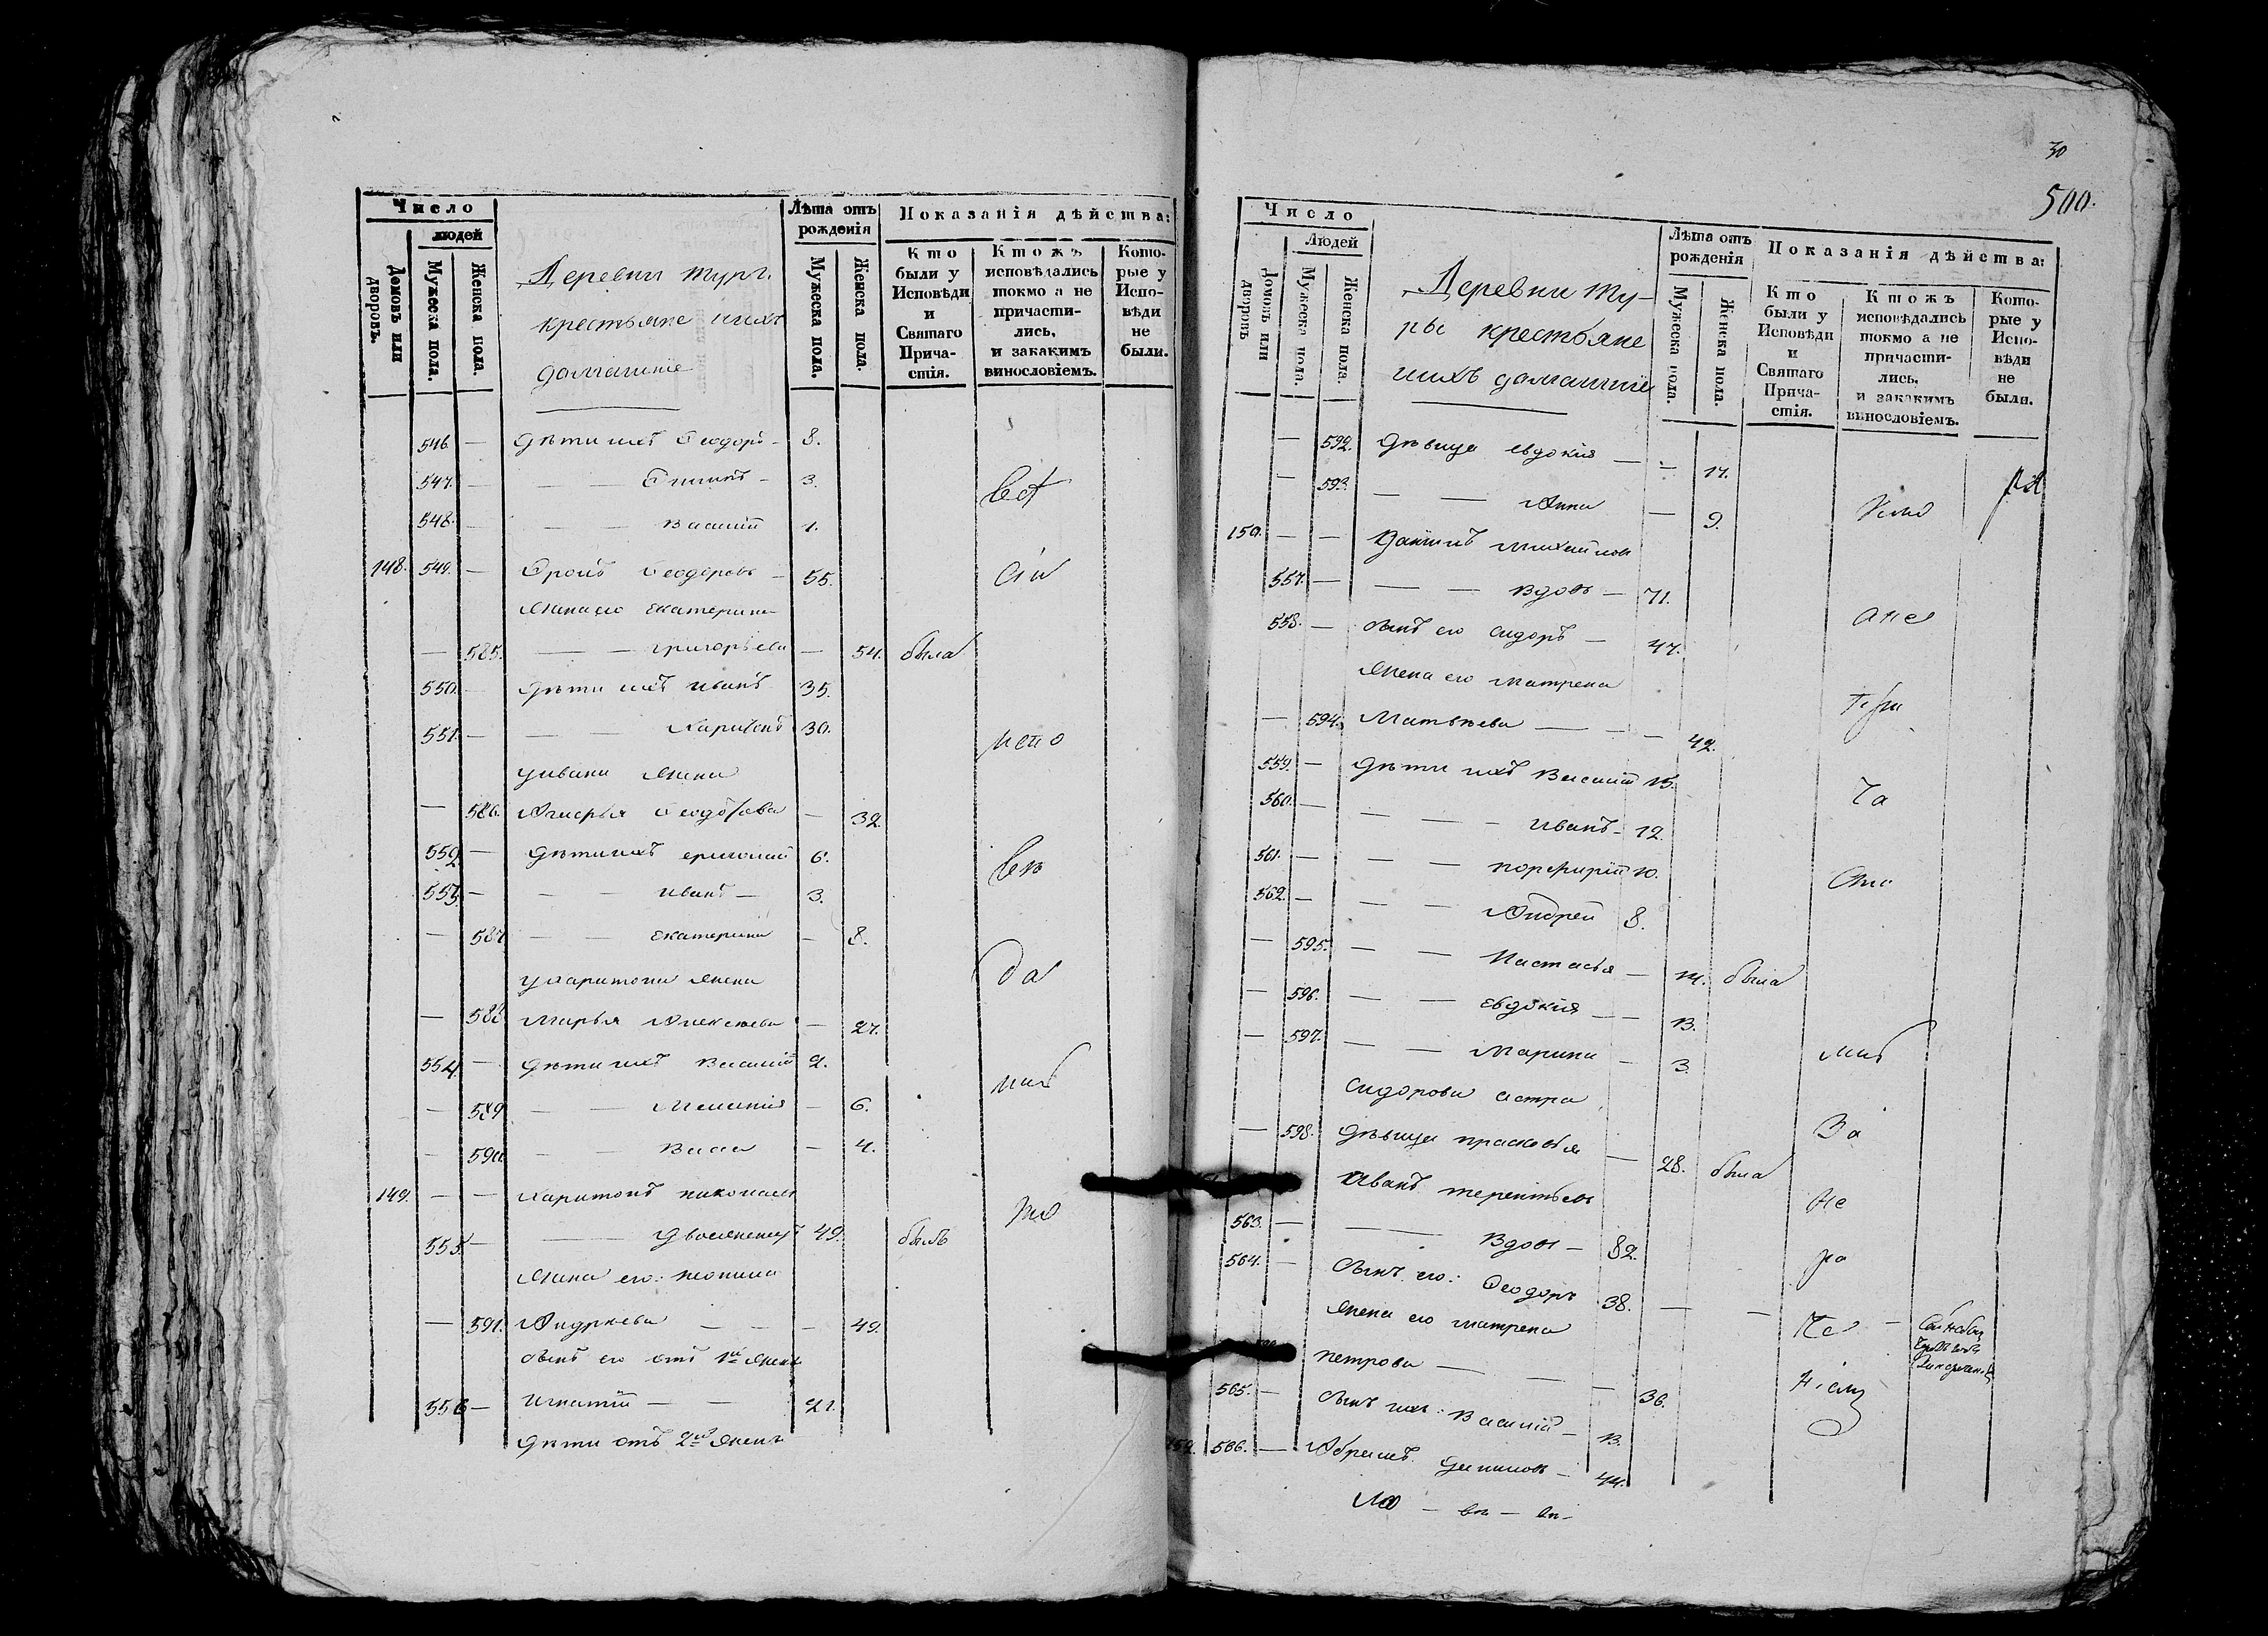 Число
людей
Домовъ или дворовъ.
Мужеска пола.
Женска пола.
Деревни Туръ
крестьяне ихъ
домашніе
Лѣта отъ рожденія
Мужеска пола.
Женска пола.
Показанія дѣйства:
Кто были у Исповѣди и Святаго Прича-стія.
Ктожъ исповѣдались токмо а не причасти-лись, и закакимъ винословіемъ.
Кото-рые у Испо-вѣди не были.
546. — дѣти ихъ Ѳеодоръ — 8.
547. — — — 3.
548. — — — Василій 1.
148. 549. — Ѳеодоровъ — 55.
жена его Екатерина
— 585. — — Григорьева — 54. была
550. — дѣти ихъ Иванъ 35.
551. — — — Харитонъ 30.
у Ивана жена
— 586. Ѳеодотова — 32.
552. — дѣти ихъ 6.
553. — — — Иванъ — 3.
— 587. — — Екатерина — 8.
у Харитона жена
— 588. Марья Алексѣева — 27.
554. — дѣти ихъ Василій 2.
— 589. — — Меланія — 6.
— 590. — — Васса — 4.
149. — — Харитонъ Николаевъ
555. — — — двоеженецъ 49. былъ
жена его:
— 591. Андрѣева — — — 49.
сынъ его отъ 1й жены
556. — Игнатій — — 21.
дѣти отъ 2й жены
30
500.
Число
Людей
Домовъ или дворовъ
Мужеска пола.
Женска пола.
Деревни Ту-
ры крестьяне
ихъ домашніе
Лѣта отъ рожденія
Мужеска пола.
Женска пола.
Показанія дѣйства:
Кто были у Исповѣди и Святаго Прича-стія.
Ктожъ исповѣдались токмо а не причасти-лись, и закакимъ винословіемъ.
Кото-рые у Испо-вѣди не были.
— 592. дѣвица Евдокія — — 17.
— 593. — — Анна — 9.
150. — — Даніилъ Михайловъ
557. — — — вдовъ — 71.
558. — сынъ его Сидоръ — 47.
жена его Матрена
— 594. Матвѣева — — — 42.
559. — дѣти ихъ Василій 15.
560. — — — — Иванъ — 12.
561. — — — Порфирій 10.
562. — — — Андрей 8.
— 595. — — Настасья — 14. была
— 596. — — Евдокія — — 13.
— 597. — — Марина — 3.
Сидорова сестра
— 598. дѣвица Прасковья — 28. была
Иванъ Терентьевъ
563. — — вдовъ — 82.
564. — сынъ его: Ѳеодоръ 38. — —
жена его Матрена
Петрова — — — 36.
565. — сынъ ихъ: Василій — 13.
566. — Абрамъ — 44.